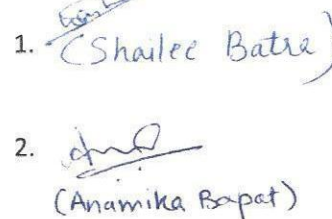 1.
(Shailee Batra)
2.
(Anamika Bapat)